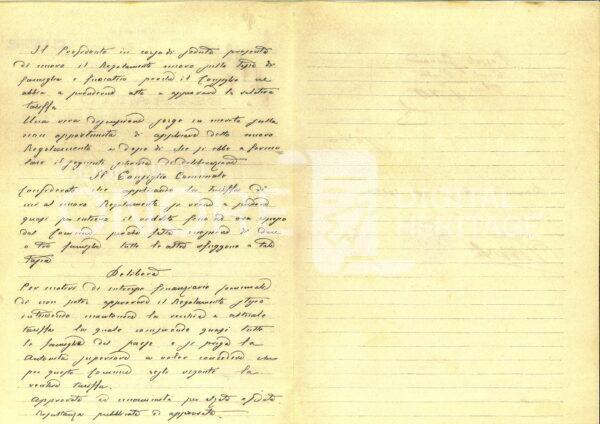 Il Presidente in corso di seduta presenta
di nuovo il Regolamento nuovo sulla Tassa di
famiglia e fuocatico perché il Consiglio ne
abbia a prendere atto e approvare la relativa
tariffa
Una vera discussione sorge in merito sulla
non opportunità di applicare detto nuovo
Regolamento e dopo di che si ebbe a formu
lare il seguente schema di deliberazione
Il Consiglio Comunale
Considerato che applicando la tariffa di
cui al nuovo Regolamento si verrà a perdere
quasi per intero il reddito fino ad ora
dal Comune poiché fatta di due
o tre famiglie tutte le altre sfuggono a tale
Tassa
Delibera
Per motivi di interesse finanziario comunale
di non poter approvare il Regolamento stesso
intendendo mantenere la vecchia e attuale
tariffa la quale comprende quasi tutte
le famiglie del paese e si prega la
Autorità superiore a voler concedere che
per questo Comune resti vigente la
vecchia tariffa.
Approvato ad unanimità per alzata e seduta